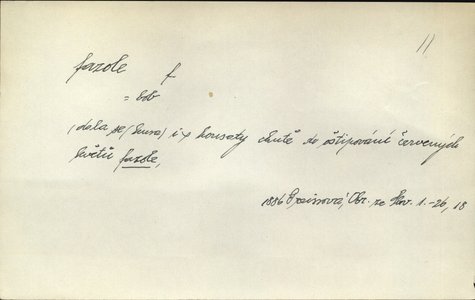 11
fazole f
= bob
(dala se (husa) i s housaty chutě do oštipování červených
květů fazole,
1886 Preissová, Obr. ze Slov. 1.-26, 18